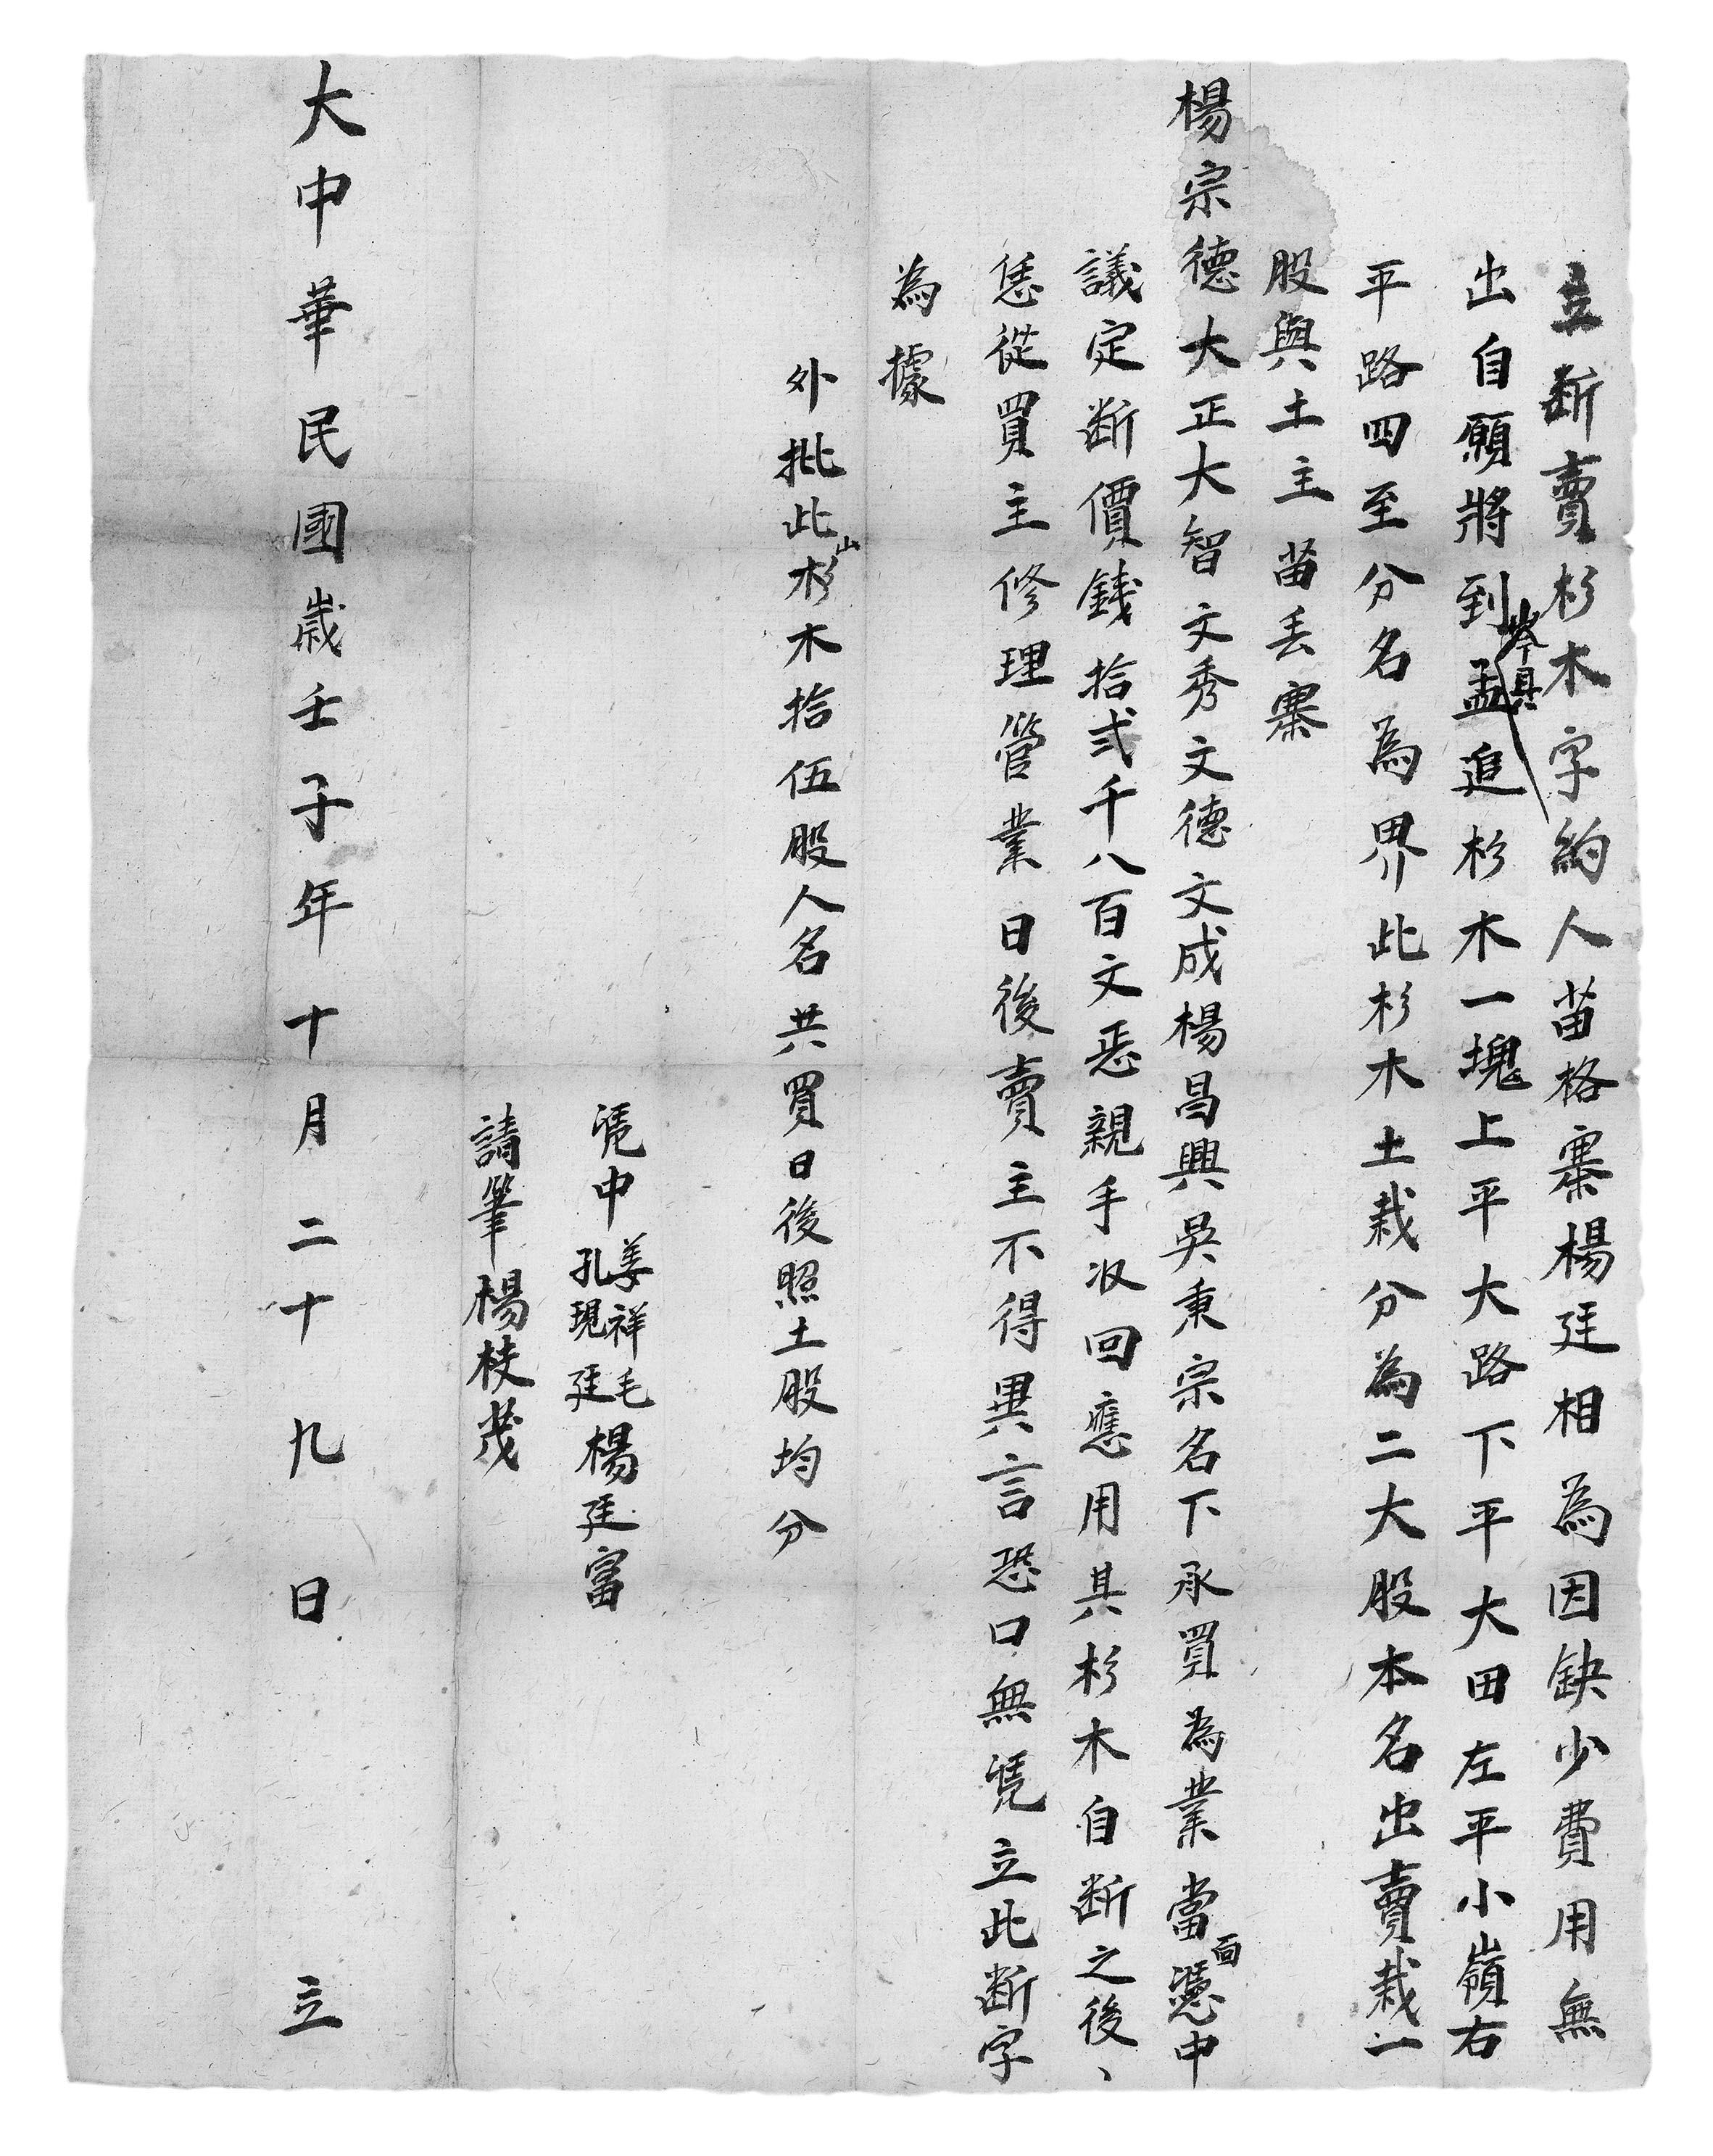 立断賣杉木字約人苗格寨楊廷相為因缺少費用無
出自願將到岑具孟追杉木一塊上平大路下平大田左平小嶺右
平路四至分名為界此杉木土栽分為二大股本名出賣栽一
股與土主苗丢寨
楊宗德大正大智文秀文德文成楊昌興吳秉宗名下承買為業當面憑中
議定断價錢拾弍千八百文悉親手収回應用其杉木自断之後、
恁從買主修理管業日後賣主不得異言恐口無凴立此断字
為據
外批此山杉木拾伍股人名共買日後照土股均分
凴中姜祥毛孔現廷楊廷富
請筆楊枝茂
大中華民國歲壬子年十月二十九日立